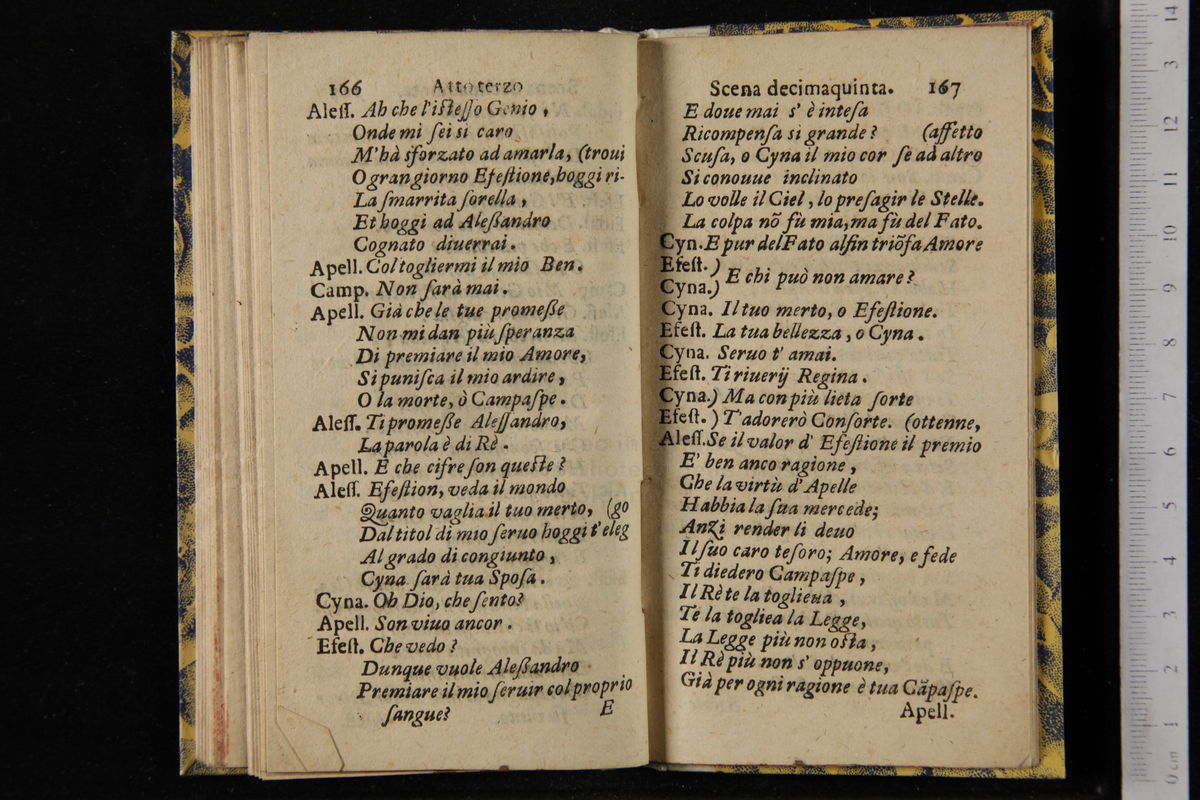 166 Atto terzo
Aless. Ah che l'istesso Genio,
Onde mi sei si caro
M'hà sforzato ad amarla, (troui
O gran giorno Efestione, hoggi ri-
La smarrita sorella,
Et hoggi ad Aleßandro
Cognato diuerrai.
Apell. Col togliermi il mio Ben.
Camp. Non sarà mai.
Apell. Già che le tue promeße
Non mi dan più speranza
Di premiare il mio Amore,
Si punisca il mio ardire,
O la morte, ò Campaspe.
Aless. Ti promeße Alessandro,
La parola è di Rè.
Apell. E che cifre son queste?
Aless. Efestion, veda il mondo
Quanto vaglia il tuo merto, (go
Dal titol di mio seruo hoggi t'eleg
Al grado di congiunto,
Cyna sarà tua Sposa.
Cyna. Oh Dio, che sento?
Apell. Son viuo ancor.
Efest. Che vedo?
Dunque vuole Aleßandro
Premiare il mio seruir col proprio
sangue? E
Scena decimaquinta. 167
E doue mai s'è intesa
Ricompensa si grande? (affetto
Scusa, o Cyna il mio cor se ad altro
Si conouue inclinato
Lo volle il Ciel, lo presagir le Stelle.
La colpa nõ fù mia, ma fù del Fato.
Cyn. E pur del Fato alfin triõfa Amore
Efest.)
Cyna.) E chi può non amare?
Cyna. Il tuo merto, o Efestione.
Efest. La tua bellezza, o Cyna.
Cyna. Seruo t'amai.
Efest. Ti riuerij Regina.
Cyna.) Ma con più lieta sorte
Efest.) T'adorerò Consorte. (ottenne,
Aless. Se il valor d'Efestione il premio
E' ben anco ragione,
Che la virtù d'Apelle
Habbia la sua mercede;
Anzi render li deuo
Il suo caro tesoro; Amore, e fede
Ti diedero Campaspe,
Il Rè te la toglieua,
Te la togliea la Legge,
La Legge più non osta,
Il Rè più non s'oppuone,
Già per ogni ragione è tua Cãpaspe.
Apell.
14
13
12
11
10
9
8
7
6
5
4
3
2
1
0 cm